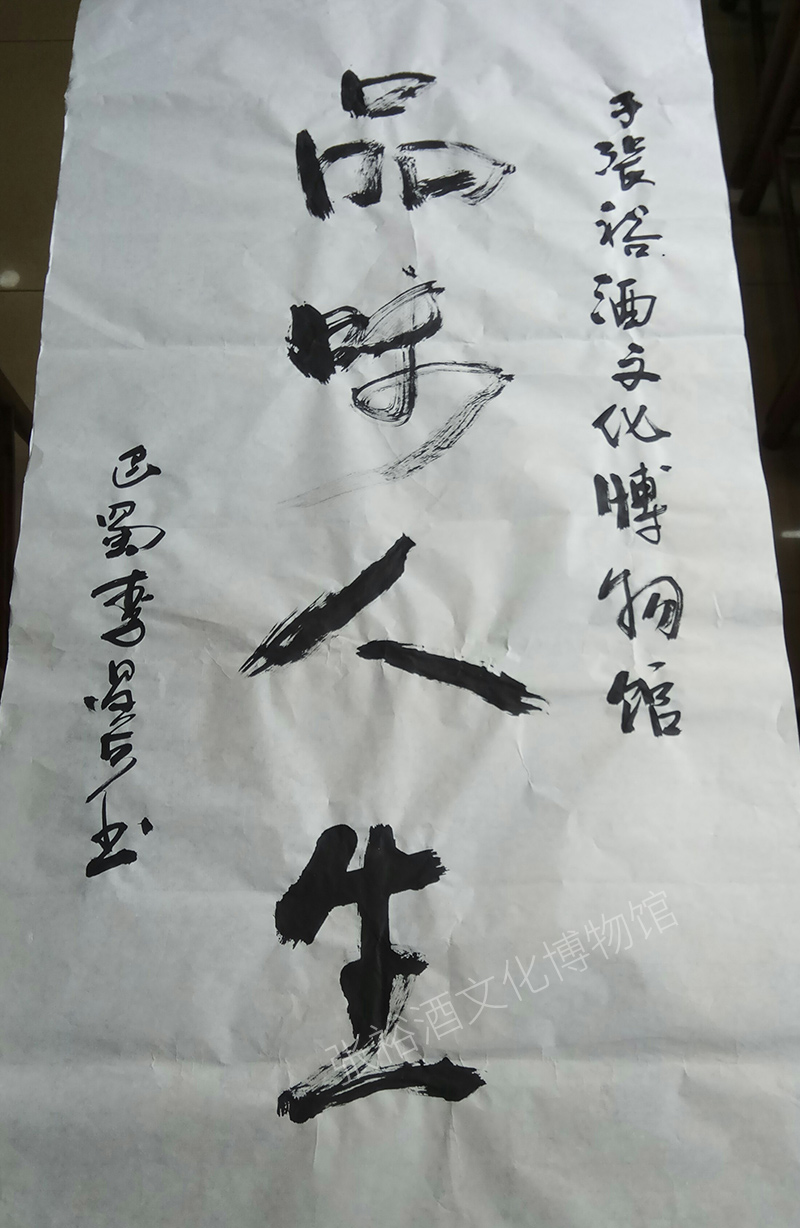 于张裕酒文化博物馆
品味人生
巴蜀李玉
张裕酒文化博物馆